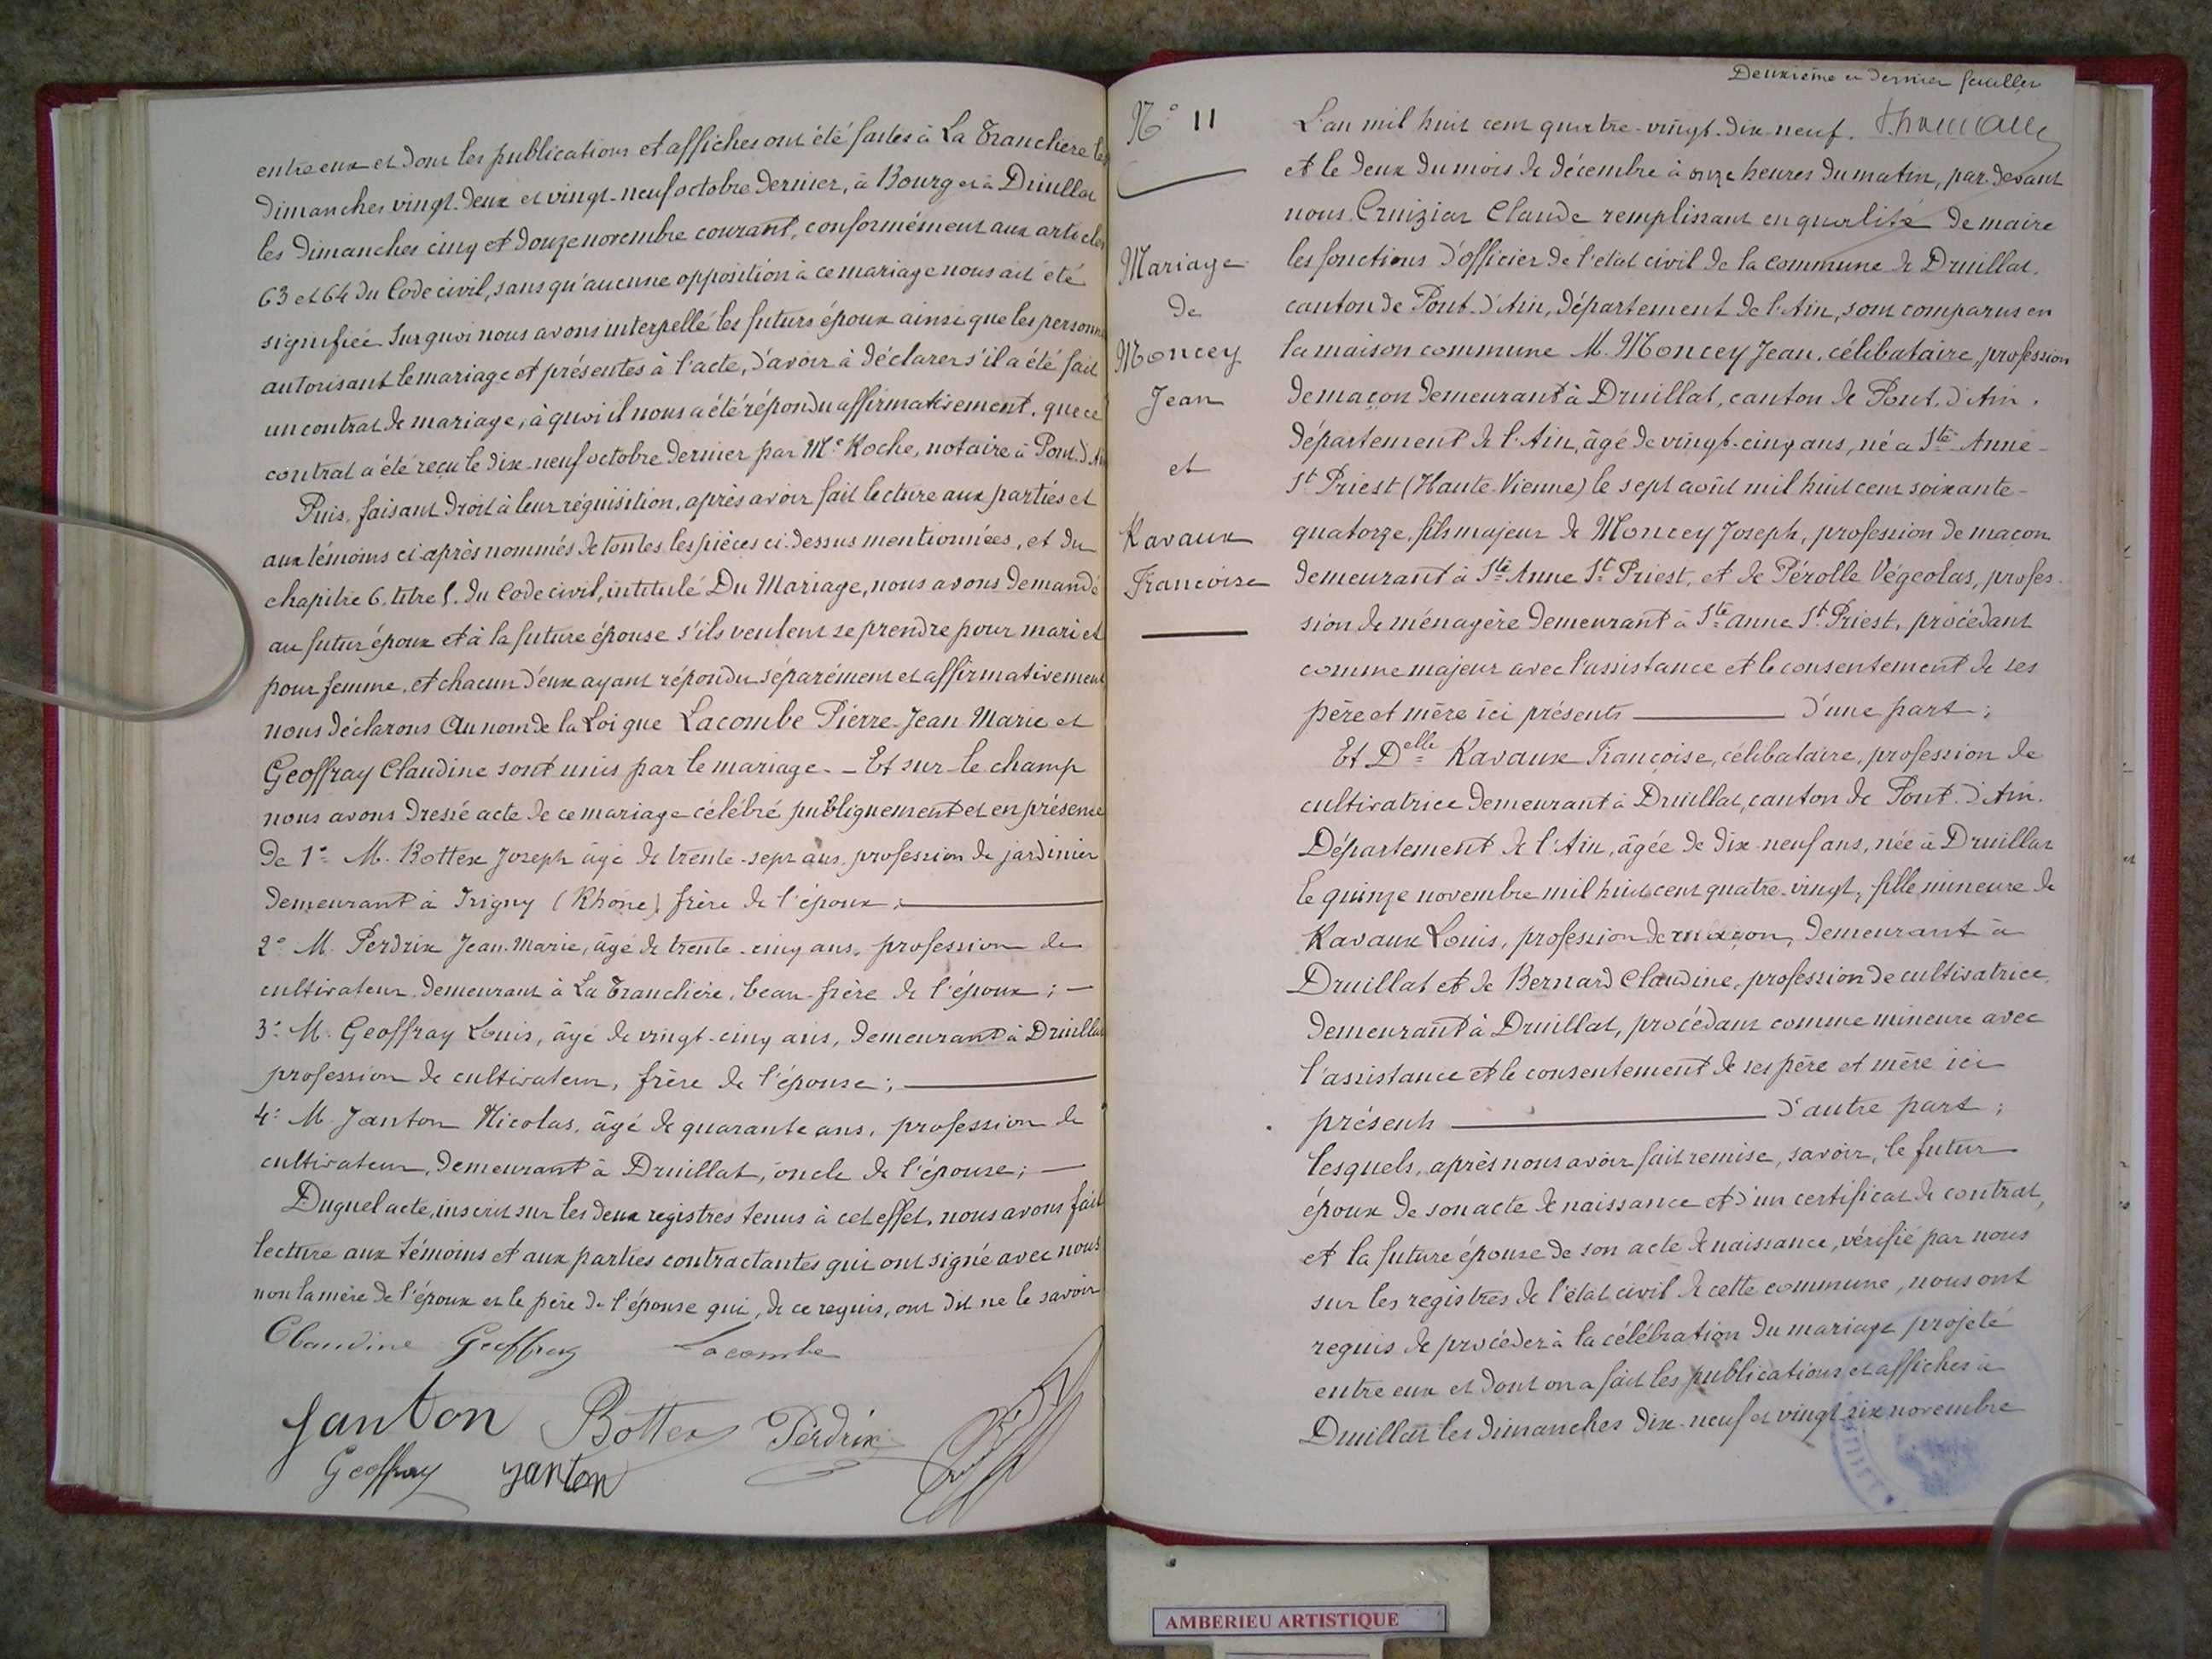 entre eux et dont les publications et affiches ont été faites à La Tranclière les
dimanches vingt-deux et vingt-neuf octobre dernier, à Bourg et à Druillat
les dimanches cinq et douze novembre courant, conformément aux articles
63 et 64 du Code civil, sans qu'aucune opposition à ce mariage nous ait été
signifiée Sur quoi nous avons interpellé les futurs époux ainsi que les personnes
autorisant le mariage et présentes à l'acte, d'avoir à déclarer s'il a été fait
un contrat de mariage, à quoi il nous a été répondu affirmativement, que ce
contrat a été reçu le dix-neuf octobre dernier par Me Roche, notaire à Pont-d'Ain
Puis, faisant droit à leur réquisition, après avoir fait lecture aux parties et
aux témoins ci-après nommés de toutes les pièces ci-dessus mentionnées, et du
chapitre 6, titre 5, du Code civil, intitulé Du Mariage, nous avons demandé
au futur époux et à la future épouse s'ils veulent se prendre pour mari et
pour femme, et chacun d'eux ayant répondu séparément et affirmativement
nous déclarons Au nom de la Loi que Lacombe Pierre-Jean-Marie et
Geoffray Claudine sont unis par le mariage. - Et sur-le champ
nous avons dressé acte de ce mariage célébré publiquement et en présence
De 1° M. Bottex Joseph âgé de trente-sept ans, profession de jardinier
demeurant à Irigny (Rhône) frère de l'époux ;
2° M. Perdrix Jean-Marie, âgé de trente-cinq ans, profession de
cultivateur, demeurant à La Tranclière, beau-frère de l'époux ; -
3° M. Geoffray Louis, âgé de vingt-cinq ans, demeurant à Druillat
profession de cultivateur, frère de l'épouse ;
4° M. Janton Nicolas, âgé de quarante ans, profession de
cultivateur, demeurant à Druillat, oncle de l'épouse ; -
Duquel acte, inscrit sur les deux registres tenus à cet effet, nous avons fait
lecture aux témoins et aux parties contractantes qui ont signé avec nous
non la mère de l'époux et le père de l'épouse qui, de ce requis, ont dit ne le savoir
Claudine Geoffray Lacombe
Janton Bottex Perdrix
Geoffray Janton
Deuxième et dernier feuillet
N° 11
Mariage
de
Moncey
Jean
et
Ravaux
Françoise
L'an mil huit cent quatre-vingt-dix-neuf.
et le deux du mois de décembre à onze heures du matin, par-devant
nous, Cruiziat Claude remplissant en qualité de maire
les fonctions d'officier de l'état civil de la commune de Druillat,
canton de Pont-d'Ain, département de l'Ain, sont comparus en
la maison commune M. Moncey Jean, célibataire, profession
de maçon demeurant à Druillat, canton de Pont-d'Ain,
département de l'Ain, âgé de vingt-cinq ans, né à Ste-Anne-
St Priest (Haute-Vienne) le sept août mil huit cent soixante-
quatorze, fils majeur de Moncey Joseph, profession de maçon
demeurant à Ste-Anne St Priest, et de Pérolle Végeolas, profes-
sion de ménagère demeurant à Ste-Anne St Priest, procédant
comme majeur avec l'assistance et le consentement de ses
père et mère ici présents d'une part ;
Et Delle Ravaux Françoise, célibataire, profession de
cultivatrice demeurant à Druillat, canton de Pont-d'Ain,
Département de l'Ain, âgée de dix-neuf ans, née à Druillat
le quinze novembre mil huit cent quatre-vingt, fille mineure de
Ravaux Louis, profession de maçon, demeurant à
Druillat et de Bernard Claudine, profession de cultivatrice,
demeurant à Druillat, procédant comme mineure avec
l'assistance et le consentement de ses père et mère ici
présents d'autre part ;
lesquels, après nous avoir fait remise, savoir, le futur
époux de son acte de naissance et d'un certificat de contrat,
et la future épouse de son acte de naissance, vérifié par nous
sur les registres de l'état civil de cette commune, nous ont
requis de procéder à la célébration du mariage projeté
entre eux et dont on a fait les publications et affiches à
Druillat les dimanches dix-neuf et vingt-six novembre
AMBERIEU ARTISTIQUE